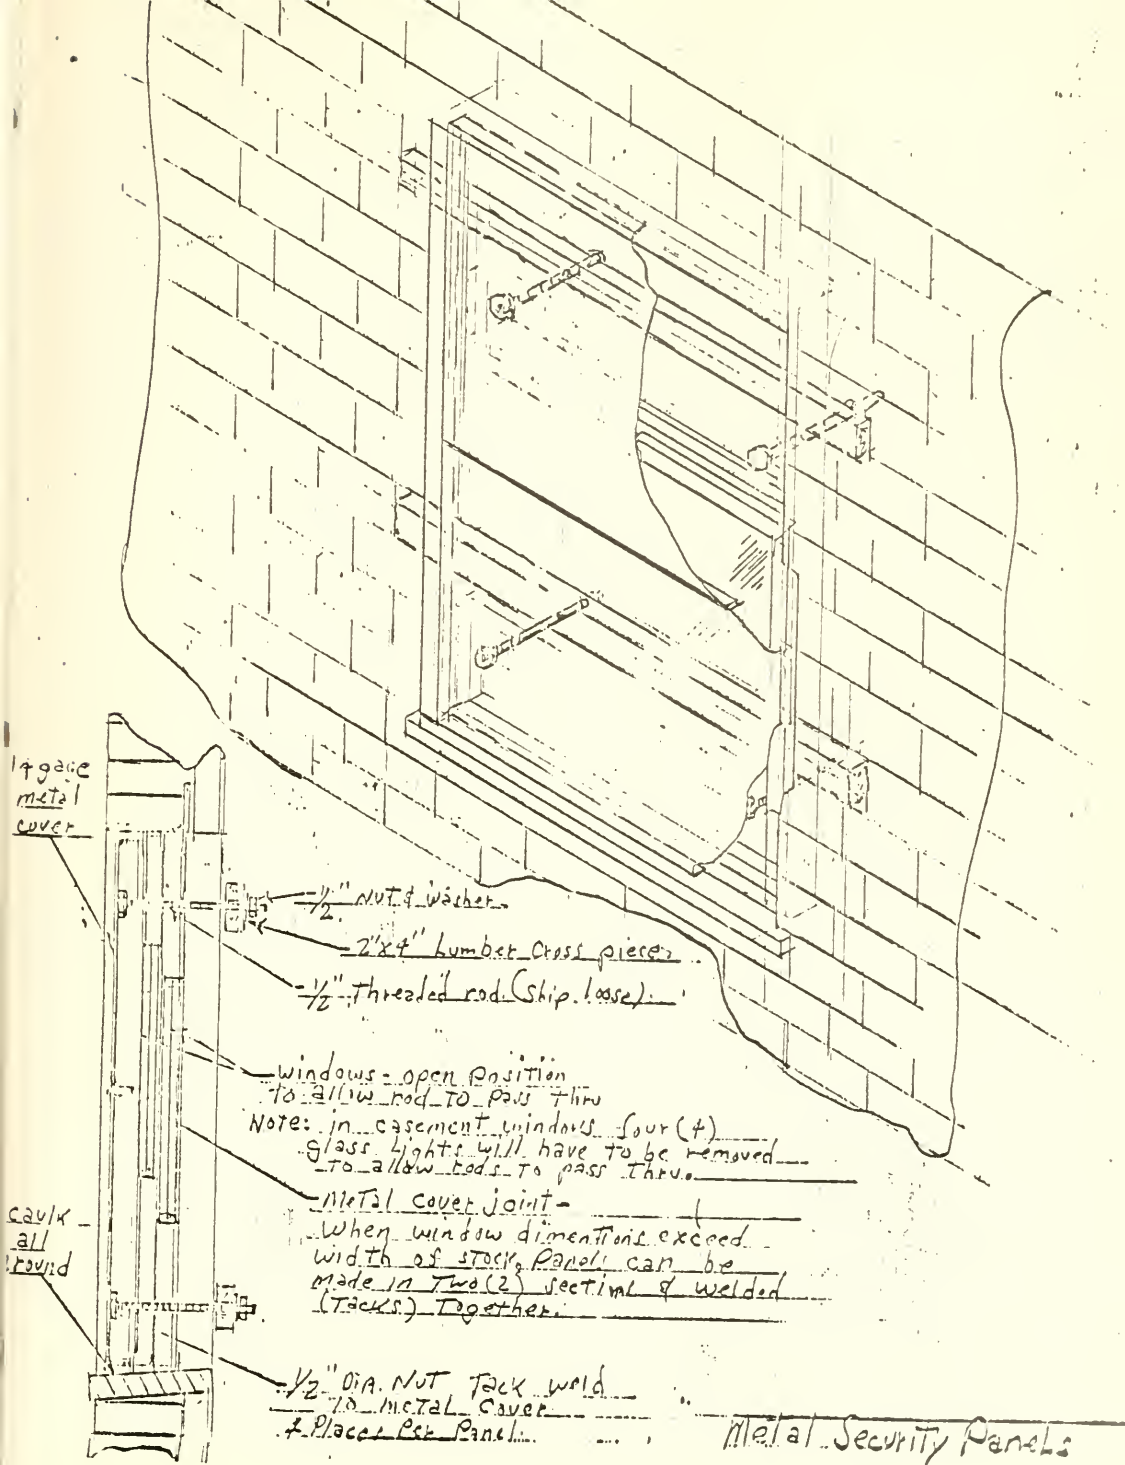 14 gage
metal
cover
1/2" Nut & Washer
2"x4" Lumber Cross pieces
1/2" Threaded rod (Ship loose)
Windows - open Position
to allow rod To Pass Thru
Note: in casement windows four (4)
glass Lights will have to be removed
to allow rods to pass Thru.
Metal cover joint -
When window dimentions exceed
width of stock, Panels can be
made in Two (2) sections & welded
(Tacks) Together.
caulk
all
round
1/2" DIA. NUT Tack weld
To Metal Cover
4 Places Per Panel.
Metal Security Panels